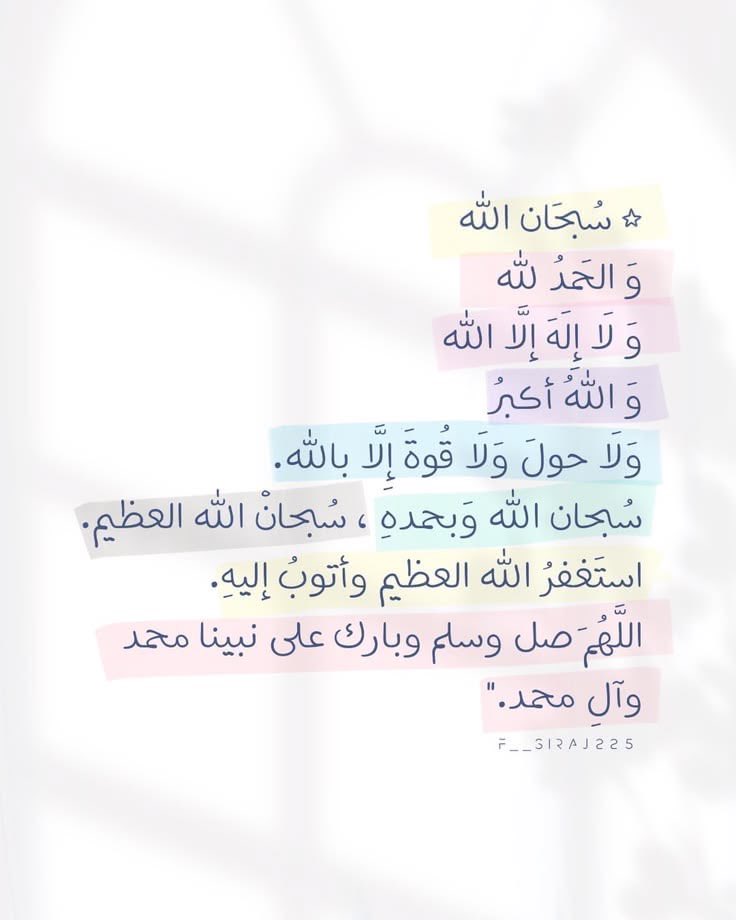 ☆ سُبحَان الله
وَ الحَمدُ لله
وَ لَا إِلَهَ إِلَّا الله
وَ اللهُ أكبرُ
وَلَا حولَ وَلَا قُوةَ إِلَّا بالله.
سُبحان الله وَبحمدهِ ، سُبحانْ الله العظيم.
استَغفرُ الله العظيم وأتوبُ إليهِ.
اللَّهُمَ صل وسلم وبارك على نبينا محمد
وآلِ محمد."
F__SIRAJ225